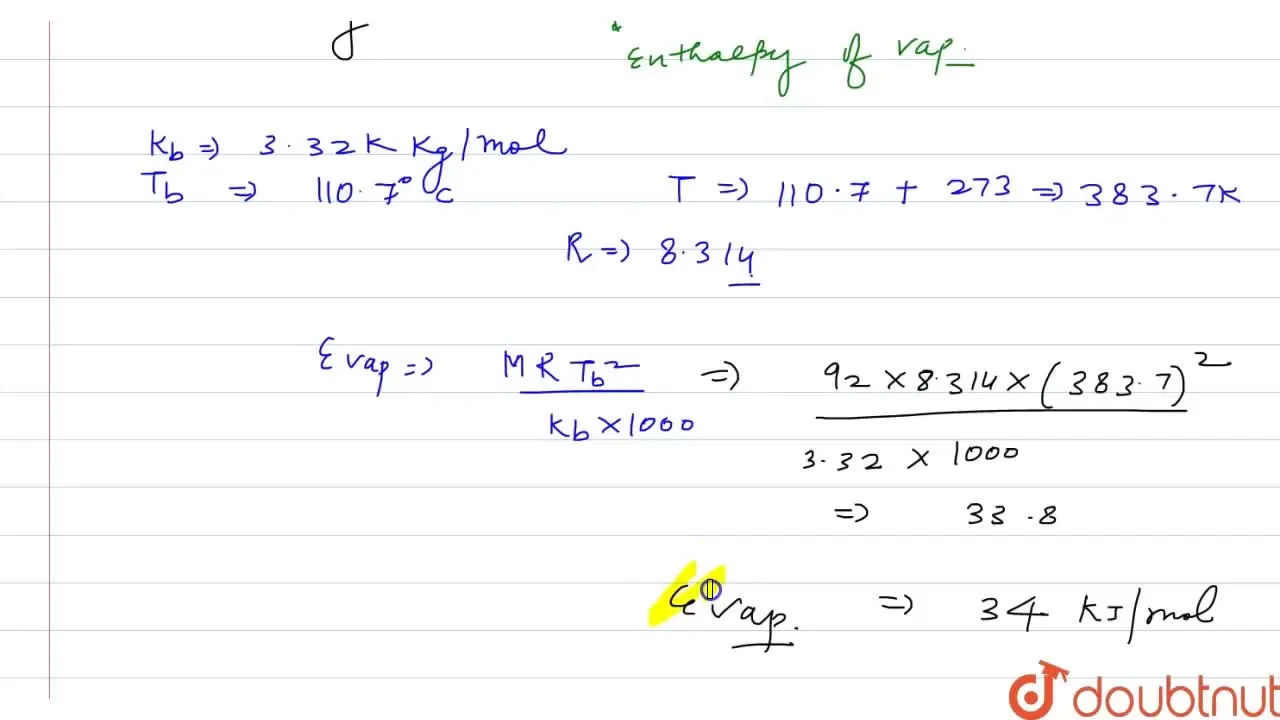 * Enthalpy of vap.
Kb => 3.32 K Kg/mol
Tb => 110.7° C T => 110.7 + 273 => 383.7K
R => 8.314
Evap => M R Tb² / Kb × 1000 => 92 × 8.314 × (383.7)² / 3.32 × 1000
=> 33.8
Evap. => 34 KJ/mol
doubtnut